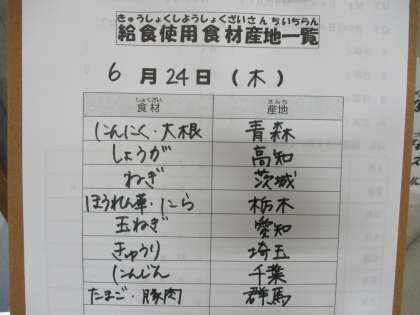 きゅうしょくしようしょくざいさんちいちらん
給食使用食材産地一覧
6月24日(木)
しょくざい さんち
食材 産地
にんにく・大根 青森
しょうが 高知
ねぎ 茨城
ほうれん草・にら 栃木
玉ねぎ 愛知
きゅうり 埼玉
にんじん 千葉
たまご・豚肉 群馬